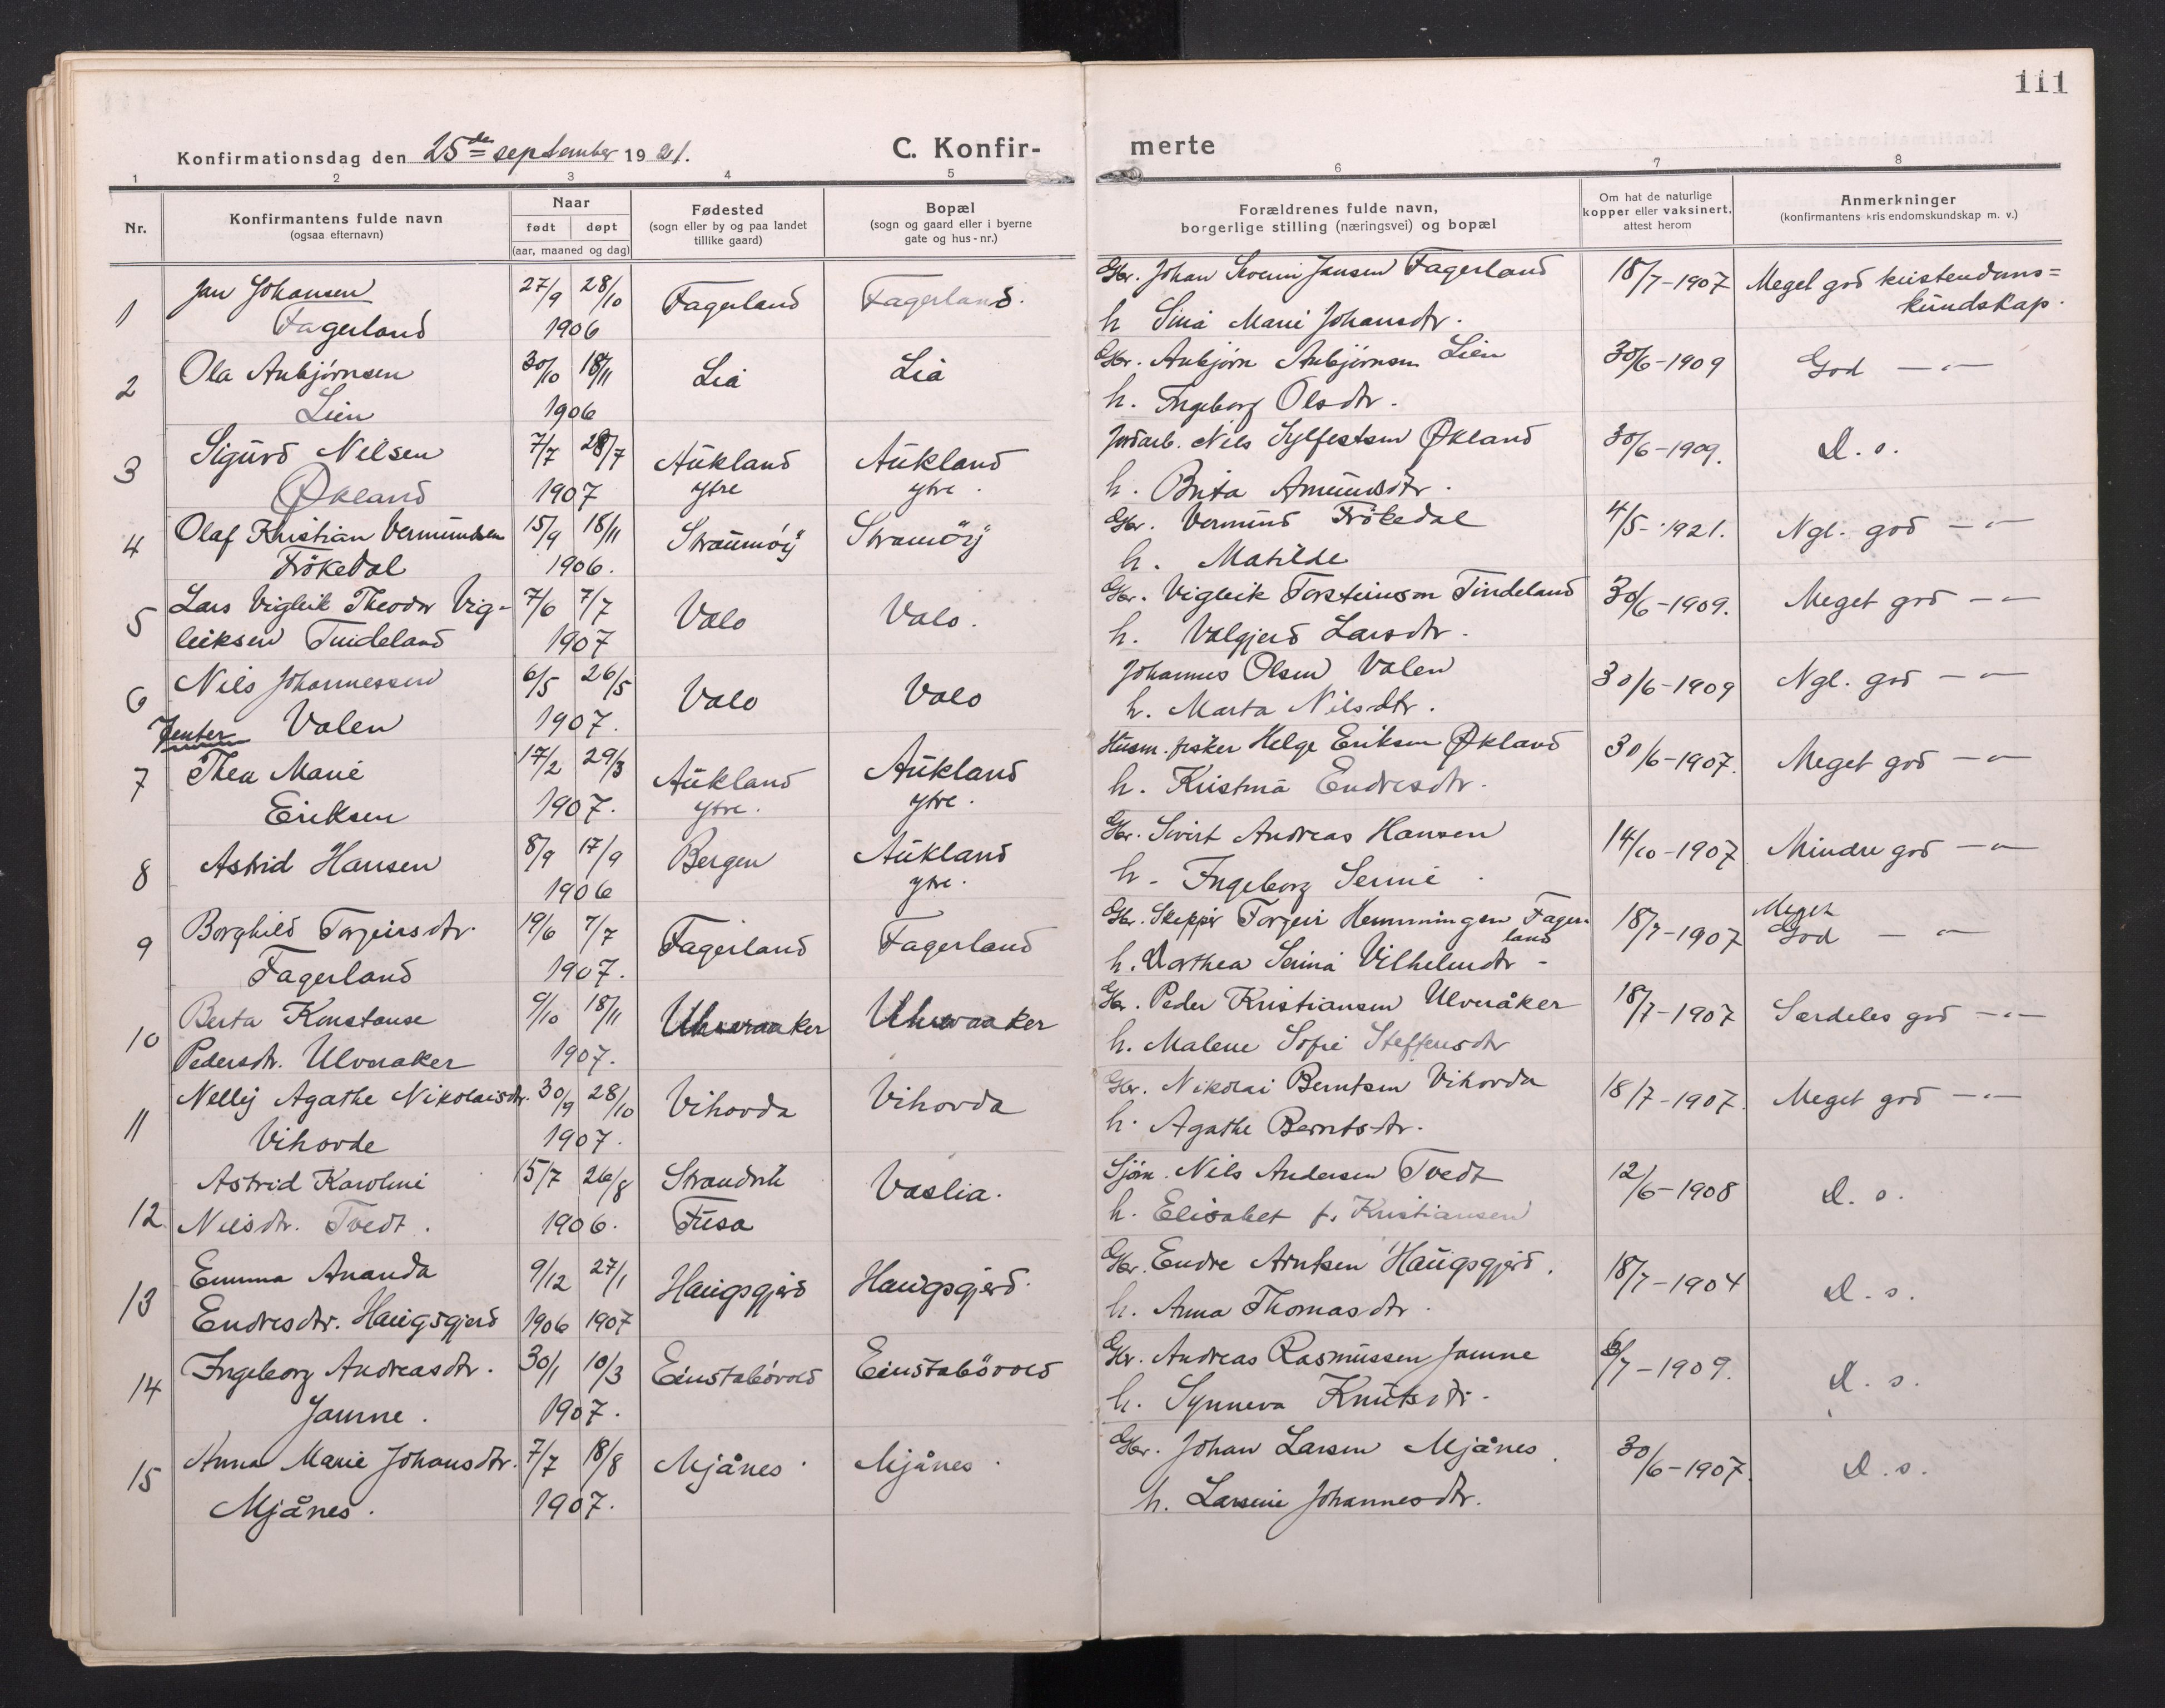 111
Konfirmationsdag den 25de september 1921. C. Konfir- merte
1 2 3 4 5 6 7 8
Nr. Konfirmantens fulde navn (ogsaa efternavn) Naar født døpt (aar, maaned og dag) Fødested (sogn eller by og paa landet tillike gaard) Bopæl (sogn og gaard eller i byerne gate og hus-nr.) Forældrenes fulde navn, borgerlige stilling (næringsvei) og bopæl Om hat de naturlige kopper eller vaksinert, attest herom Anmerkninger (konfirmantens kristendomskundskap m. v.)
1 Jan Johansen 27/9 28/10 Fagerland Fagerland. Gbr. Johan Severin Jansen Fagerland 18/7-1907 Meget god kristendoms=
Fagerland 1906 h Sina Marie Johansdtr. kundskap.
2 Ola Anbjørnsen 30/10 18/11 Lia Lia Gbr. Anbjørn Anbjørnsen Lien 30/6-1909 God — " —
Lien 1906 h. Ingeborg Olsdtr.
3 Sigurd Nilsen 7/7 28/7 Aukland Aukland Jordarb. Nils Sylfestsen Økland 30/6-1909. D. s.
Økland 1907 ytre ytre. h. Brita Amundsdtr.
4 Olaf Khristian Vermundsen 15/9 18/11 Straumöÿ Stramöÿ Gbr. Vermund Frökedal 4/5-1921. Ngl. god — " —
Frökedal 1906. h. Matilde
5 Lars Vigleik Theodor Vig- 7/6 7/7 Valo Valo. Gbr. Vigleik Torsteinson Tindeland 30/6-1909. Meget god — " —
leiksen Tindeland 1907 h. Valgjerd Larsdtr.
6 Nils Johannessen 6/5 26/5 Valo Valo Johannes Olsen Valen 30/6-1909 Ngl. god — " —
Valen 1907. h. Marta Nilsdtr.
Jenter
7 Thea Marie 17/2 29/3 Aukland Aukland Husm. fisker Helge Eriksen Økland 30/6-1907. Meget god — " —
Eriksen 1907. ytre. ytre. h. Kristina Endresdtr.
8 Astrid Hansen 8/9 17/9 Bergen Aukland Gbr. Sivert Andreas Hansen 14/10-1907 Mindre god — " —
1906 ytre. h. Ingeborg Serine.
9 Borghild Torgeirsdtr. 19/6 7/7 Fagerland Fagerland Gbr. Skipper Torgeir Hemmingsen Fager- 18/7-1907 Meget
Fagerland 1907. land God — " —
h. Dorthea Serina Vilhelmsdtr.
10 Berta Konstanse 9/10 18/11 Ulveraaker Ulveraaker Gbr. Peder Kristiansen Ulveråker 18/7-1907 Særdeles god — " —
Pedersdtr. Ulveraker 1907. h. Malene Sofie Steffensdtr
11 Nellÿ Agathe Nikolaisdtr. 30/9 28/10 Vihovda Vihovda Gbr. Nikolai Berntsen Vihovda 18/7-1907. Meget god — " —
Vihovde 1907. h. Agathe Berntsdtr.
12. Astrid Karoline 15/7 26/8 Strandvik Vaslia. Sjöm. Nils Andersen Tvedt 12/6-1908 D. s.
Nilsdtr. Tvedt. 1906. Fusa h. Elisabet f. Kristiansen
13 Emma Ananda 9/12 27/1 Haugsgjerd Haugsgjerd. Gbr. Endre Arntsen Haugsgjerd. 18/7-1904 D. s.
Endresdtr. Haugsgjerd 1906 1907 h. Anna Thomasdtr.
14 Ingeborg Andreasdtr. 30/1 10/3 Einstabövold Einstabövold Gbr. Andreas Rasmussen Jamne 6/7-1909. D. s.
Jamne. 1907. h. Synneva Knutsdtr.
15 Anna Marie Johansdtr. 7/7 18/8 Mjånes. Mjånes. Gbr. Johan Larsen Mjånes. 30/6-1907. D. s.
Mjånes. 1907. h. Larsine Johannesdtr.